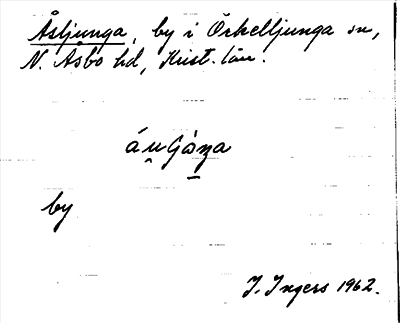 Åsljunga, by i Örkelljunga sn,
N. Åsbo hd, Krist. län.
by
I. Ingers 1962.